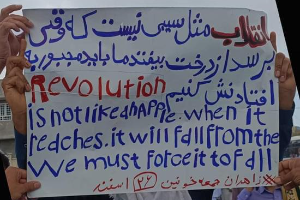 انقلاب مثل سیبی نیست که وقتی
برسد از درخت بیفتد ما باید مجبور به
افتادنش کنیم
Revolution
is not like an apple. when it
redches. it will fall from the
We must force it to fall
زاهدان جمعه خونین ۲۶ اسفند